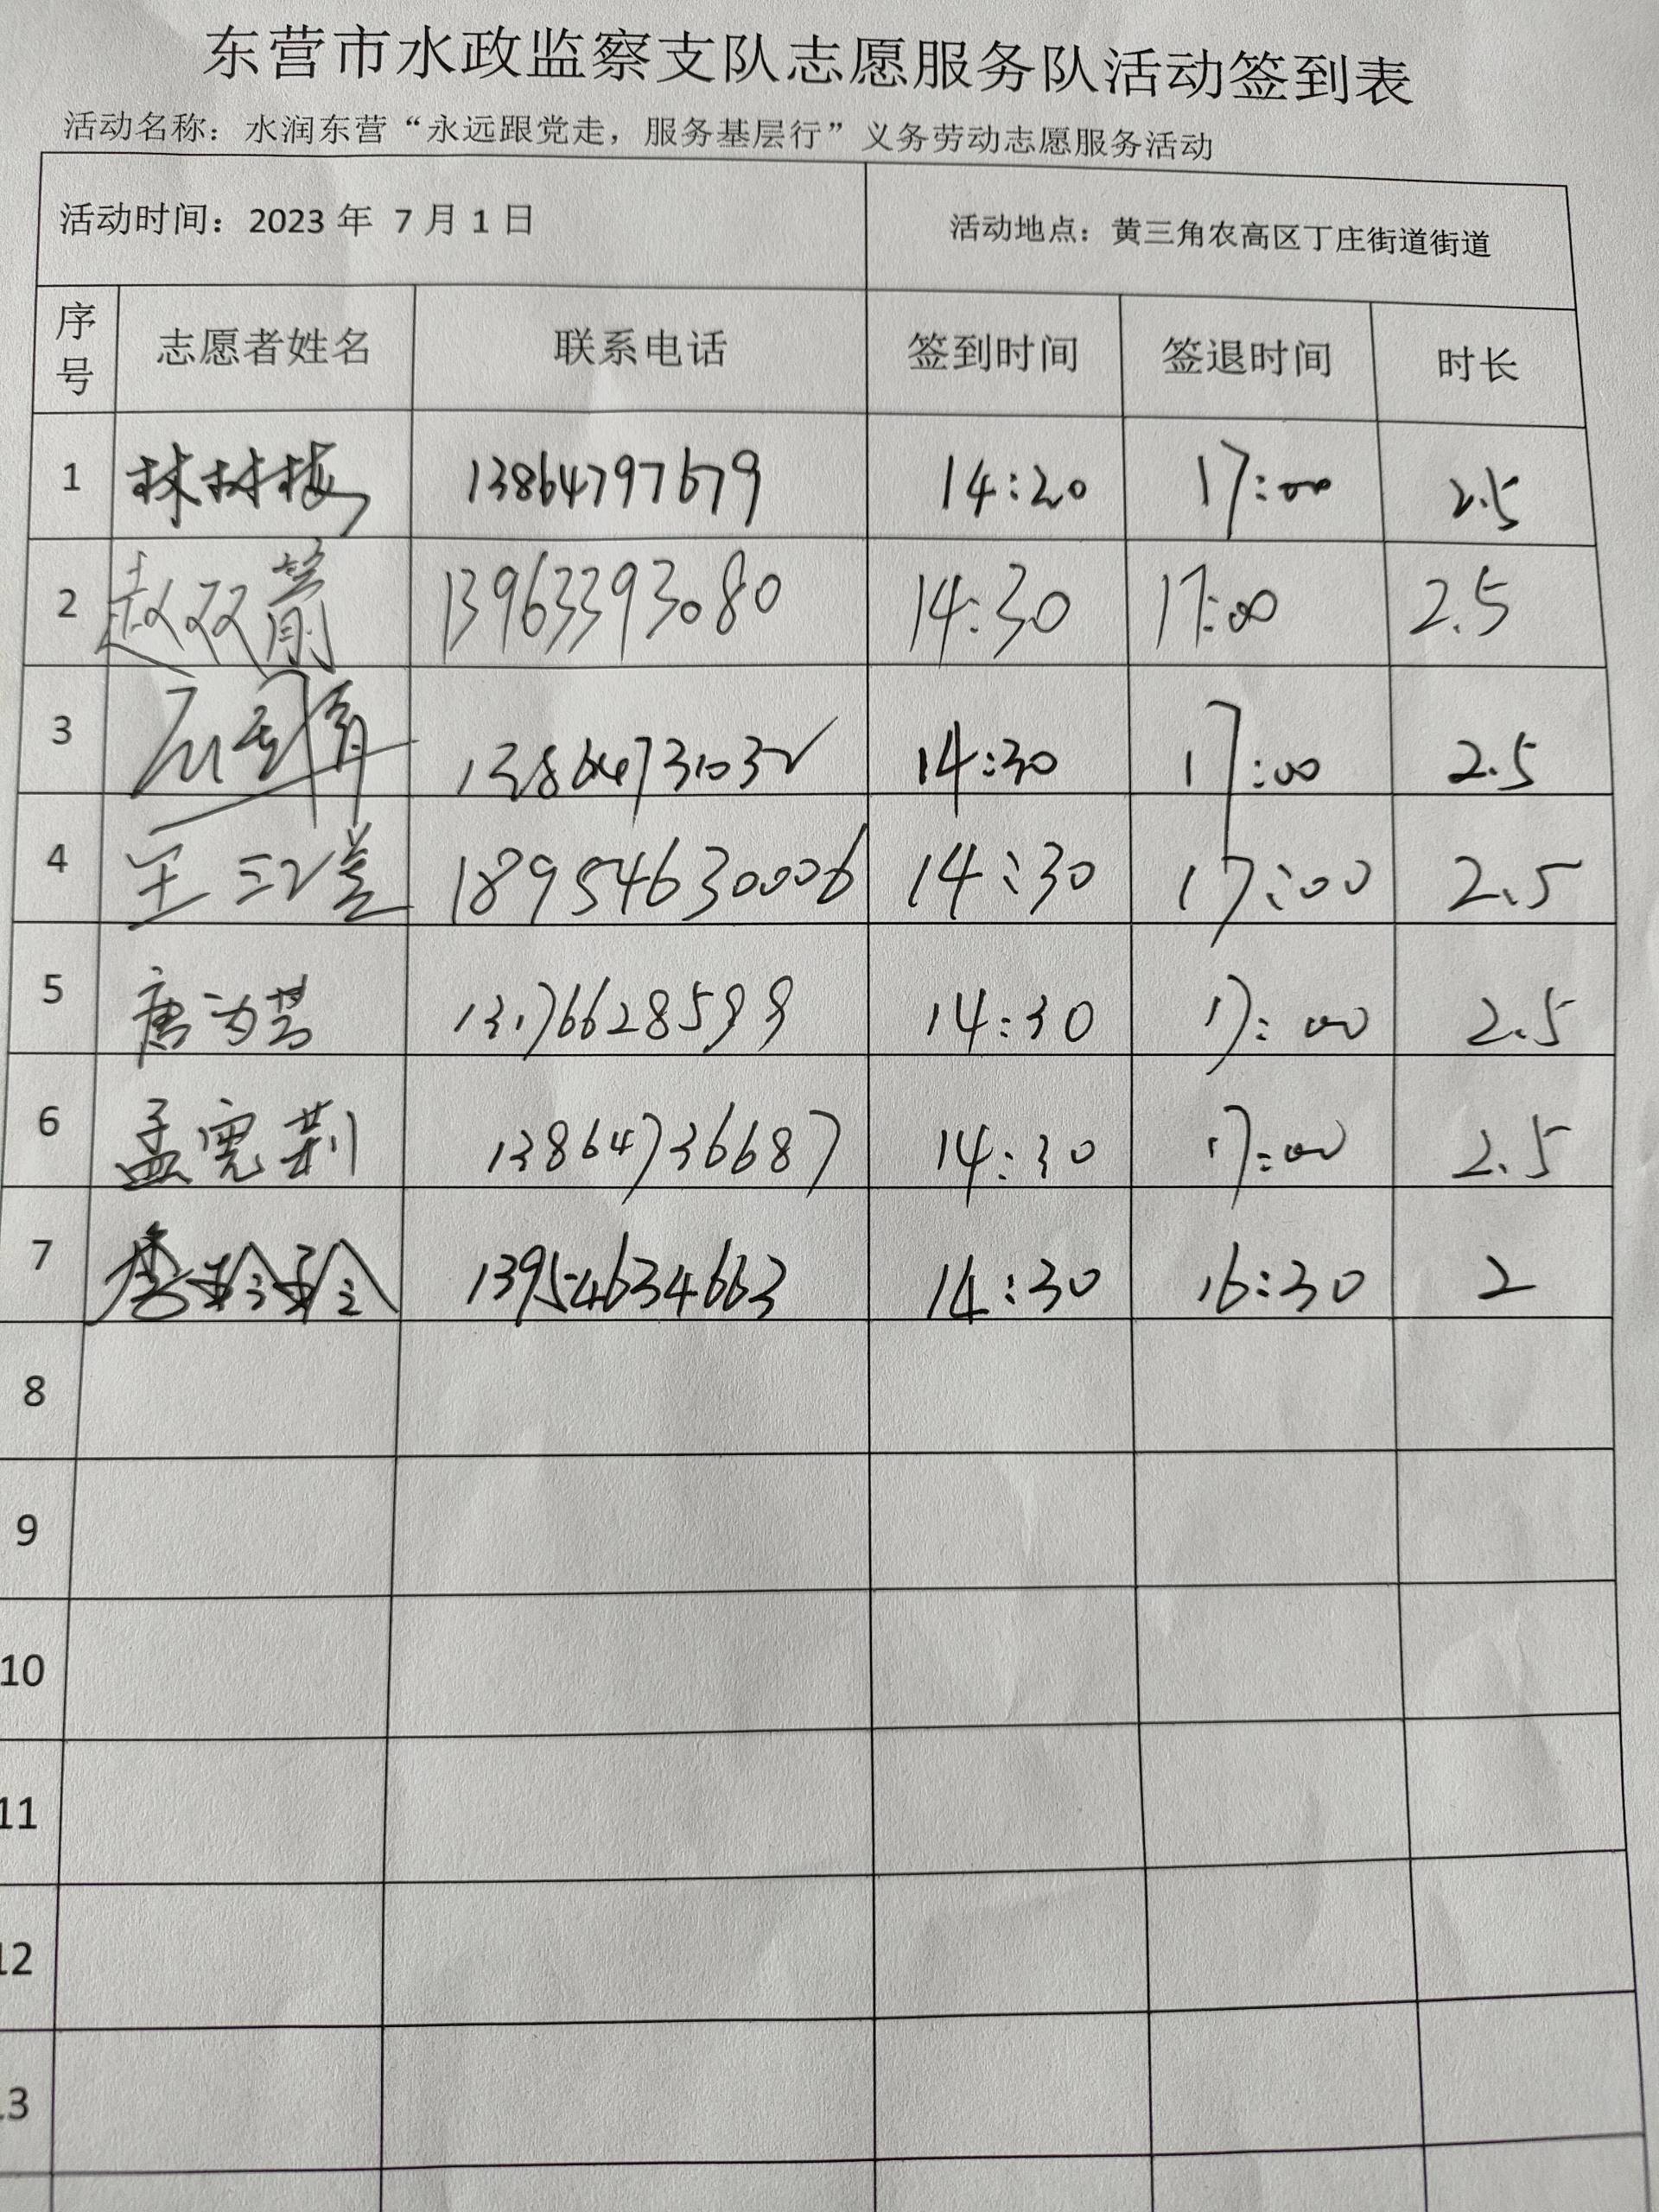 东营市水政监察支队志愿服务队活动签到表
活动名称：水润东营“永远跟党走，服务基层行”义务劳动志愿服务活动
活动时间：2023 年 7 月 1 日 活动地点：黄三角农高区丁庄街道街道
序号 志愿者姓名 联系电话 签到时间 签退时间 时长
1 林林梅 13864797679 14:20 17:00 2.5
2 赵双 13963393080 14:30 17:00 2.5
3 13864731032 14:30 17:00 2.5
4 王 18954630006 14:30 17:00 2.5
5 唐 14:30 17:00 2.5
6 孟宪莉 13864736687 14:30 17:00 2.5
7 李玲玲 13954634663 14:30 16:30 2
8
9
10
11
12
13